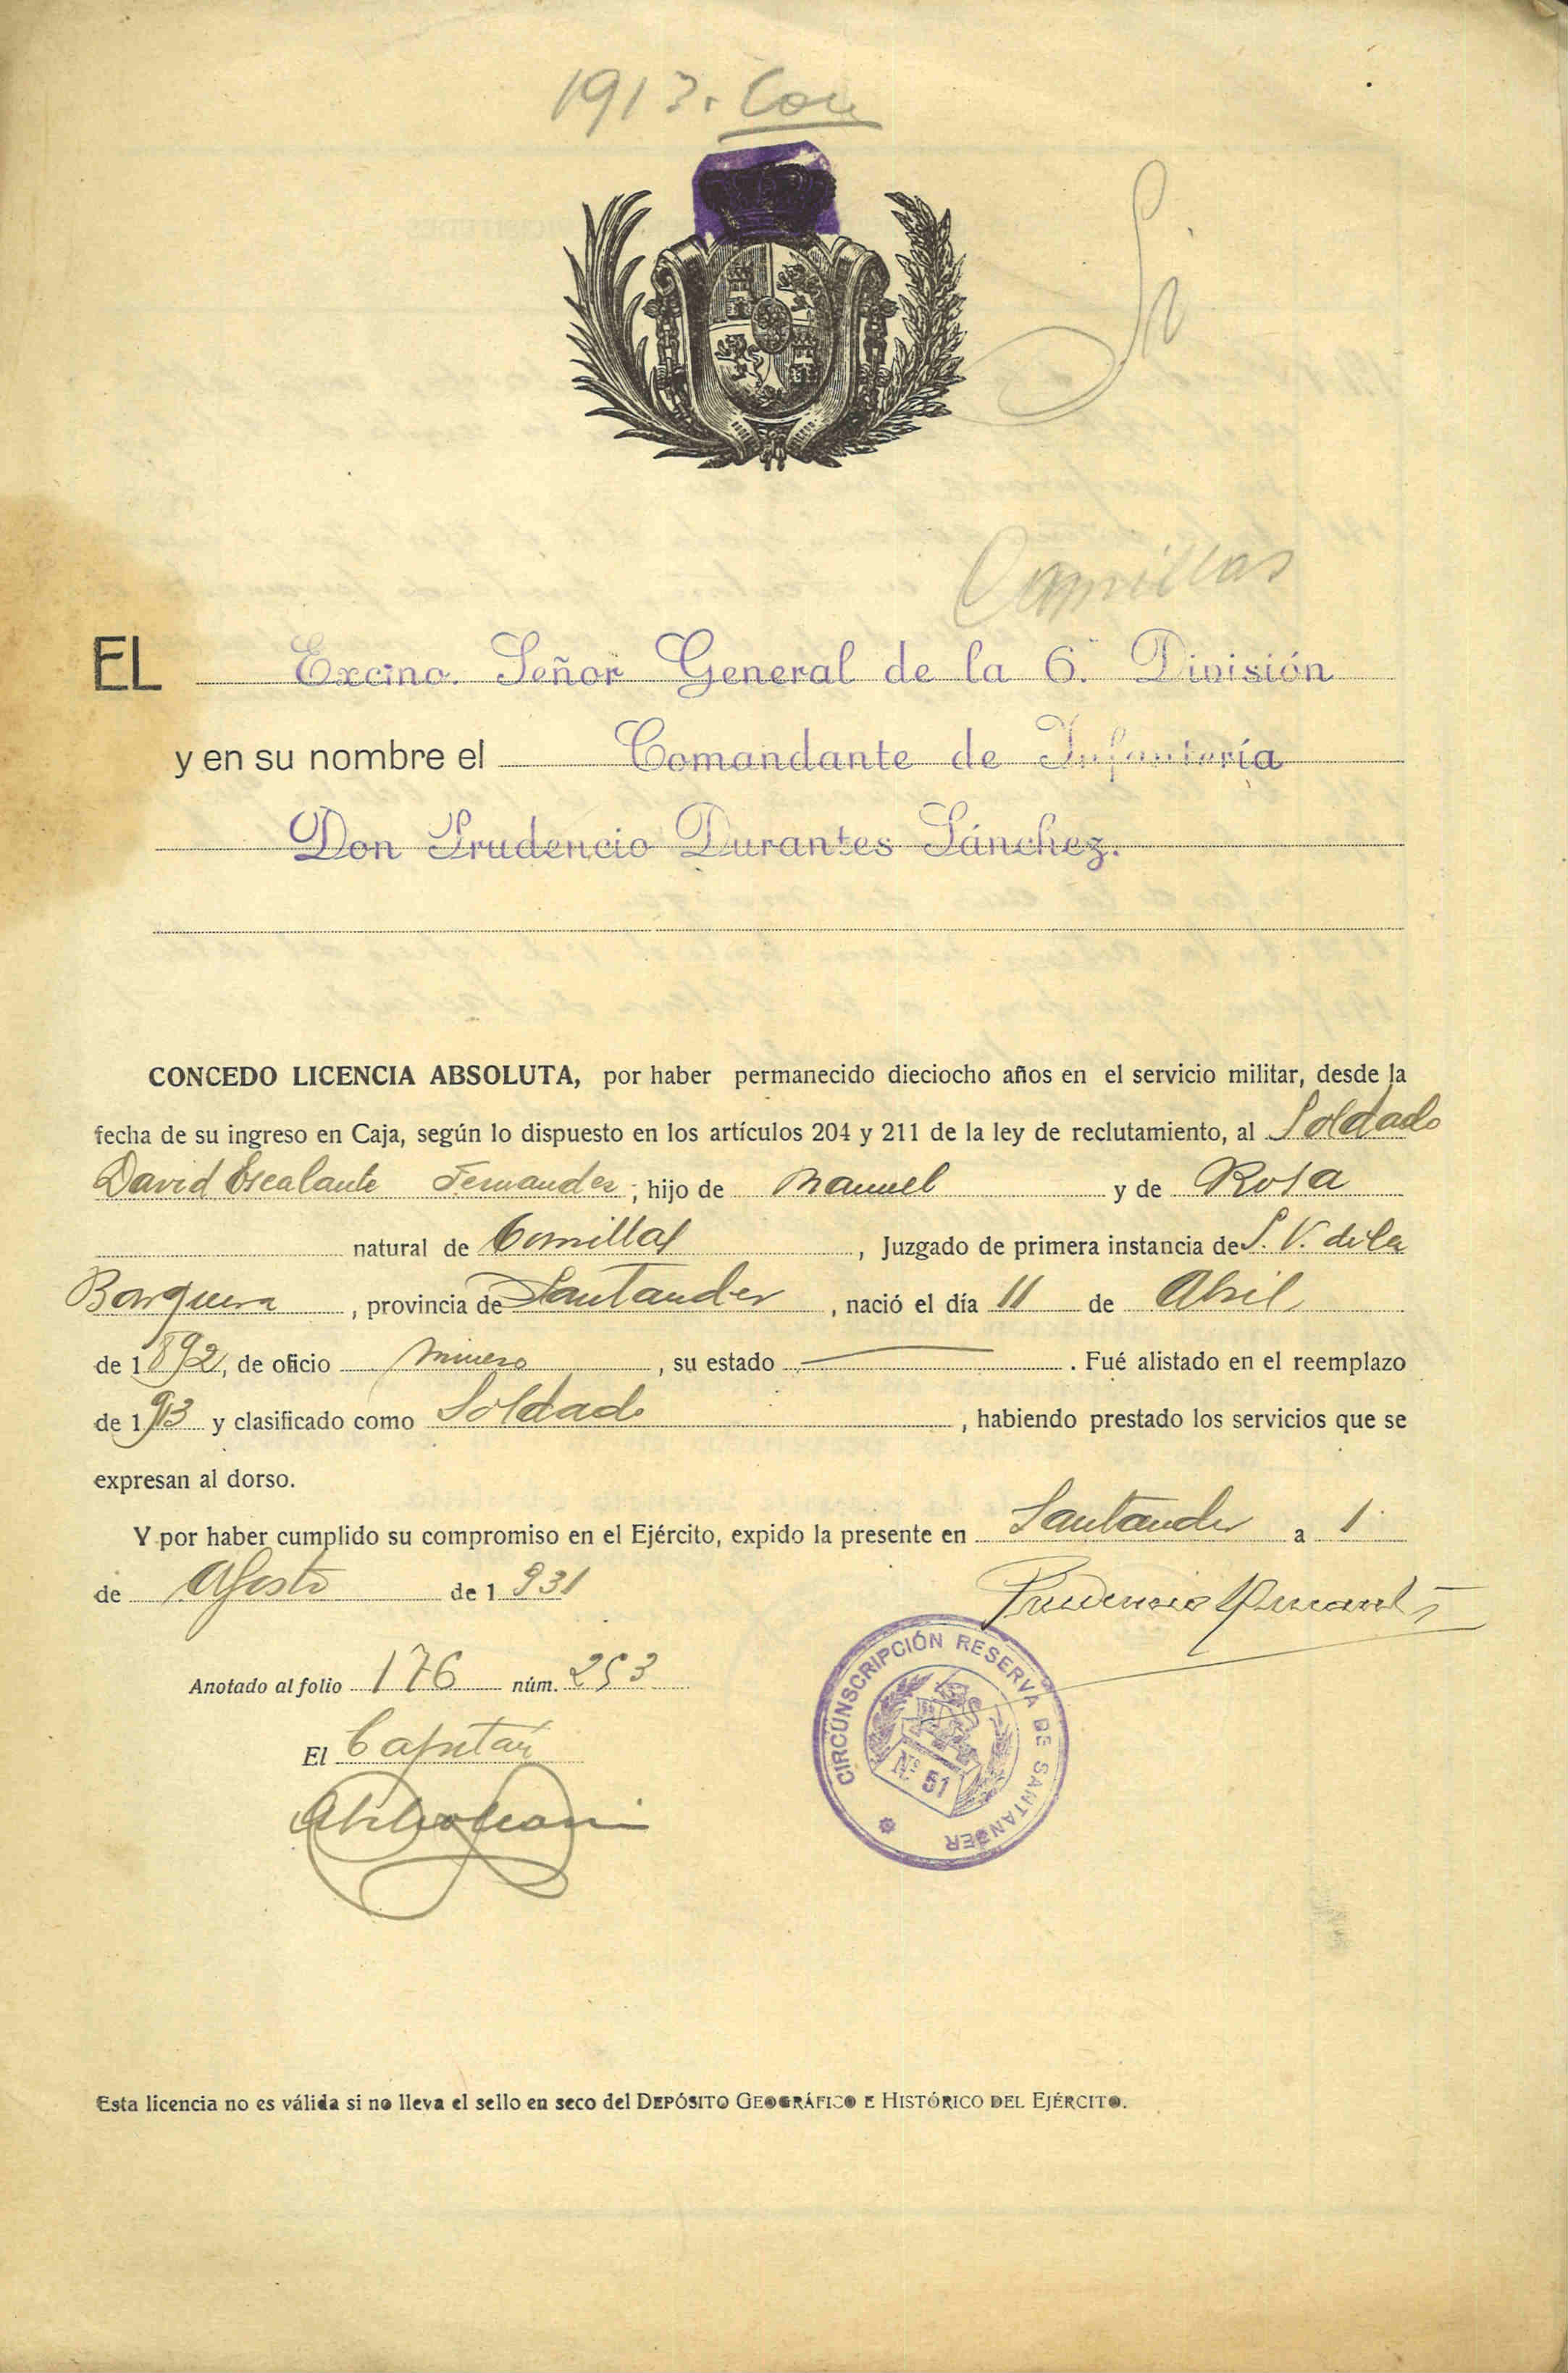 1913. Com
Si
Comillas
EL Excmo. Señor General de la 6.ª División
y en su nombre el Comandante de Infantería
Don Prudencio Durantes Sánchez.
CONCEDO LICENCIA ABSOLUTA, por haber permanecido dieciocho años en el servicio militar, desde la
fecha de su ingreso en Caja, según lo dispuesto en los artículos 204 y 211 de la ley de reclutamiento, al Soldado
David Escalante Fernandez, hijo de Manuel y de Rosa
natural de Comillas, Juzgado de primera instancia de S. V. de la
Barquera, provincia de Santander, nació el día 11 de Abril
de 1892, de oficio minero, su estado —. Fué alistado en el reemplazo
de 1913 y clasificado como Soldado, habiendo prestado los servicios que se
expresan al dorso.
Y por haber cumplido su compromiso en el Ejército, expido la presente en Santander a 1
de Agosto de 1931
Prudencio Durantes
Anotado al folio 176 núm. 253
El Capitán
CIRCUNSCRIPCIÓN RESERVA DE SANTANDER
Nº 51
Esta licencia no es válida si no lleva el sello en seco del DEPÓSITO GEOGRÁFICO E HISTÓRICO DEL EJÉRCITO.